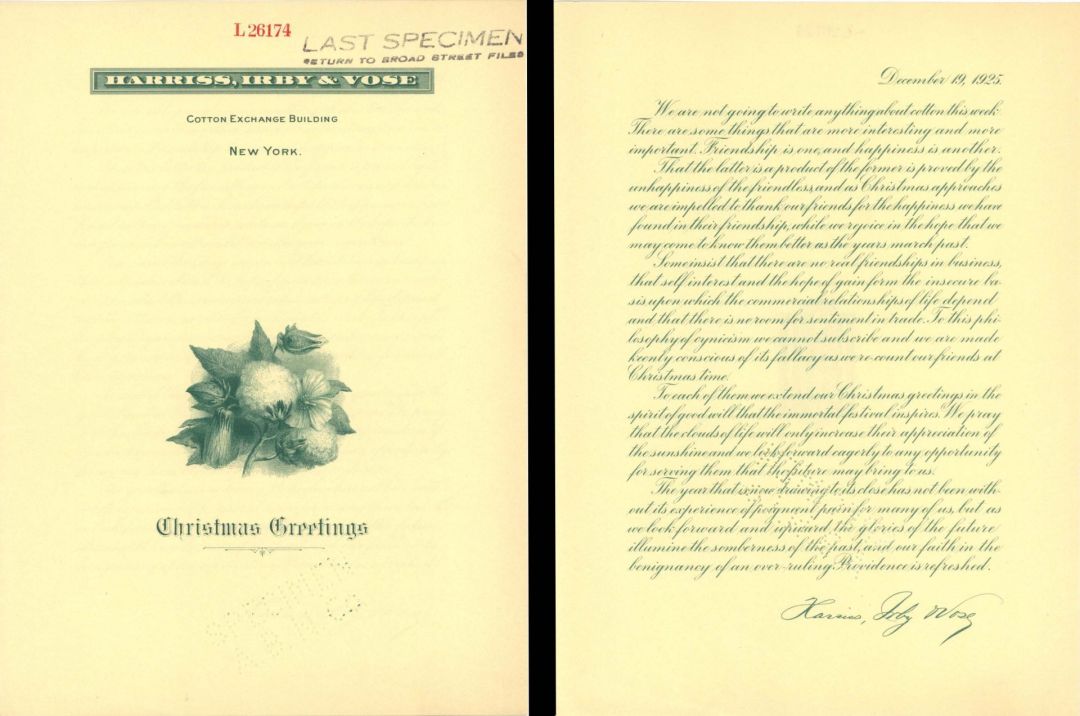 L 26174
LAST SPECIMEN
RETURN TO BROAD STREET FILES
HARRISS, IRBY & VOSE
COTTON EXCHANGE BUILDING
NEW YORK.
Christmas Greetings
December 19, 1925.
We are not going to write anything about cotton this week.
There are some things that are more interesting and more
important. Friendship is one, and happiness is another.
That the latter is a product of the former is proved by the
unhappiness of the friendless, and as Christmas approaches
we are impelled to thank our friends for the happiness we have
found in their friendship, while we rejoice in the hope that we
may come to know them better as the years march past.
Some insist that there are no real friendships in business,
that self interest and the hope of gain form the insecure ba-
sis upon which the commercial relationships of life depend
and that there is no room for sentiment in trade. To this phi-
losophy of cynicism we cannot subscribe and we are made
keenly conscious of its fallacy as we re-count our friends at
Christmas time.
To each of them we extend our Christmas greetings in the
spirit of good will that the immortal festival inspires. We pray
that the clouds of life will only increase their appreciation of
the sunshine and we look forward eagerly to any opportunity
for serving them that the future may bring to us.
The year that is now drawing to its close has not been with-
out its experience of poignant pain for many of us, but as
we look forward and upward, the glories of the future
illumine the somberness of the past, and our faith in the
benignancy of an over-ruling Providence is refreshed.
Harriss, Irby & Vose